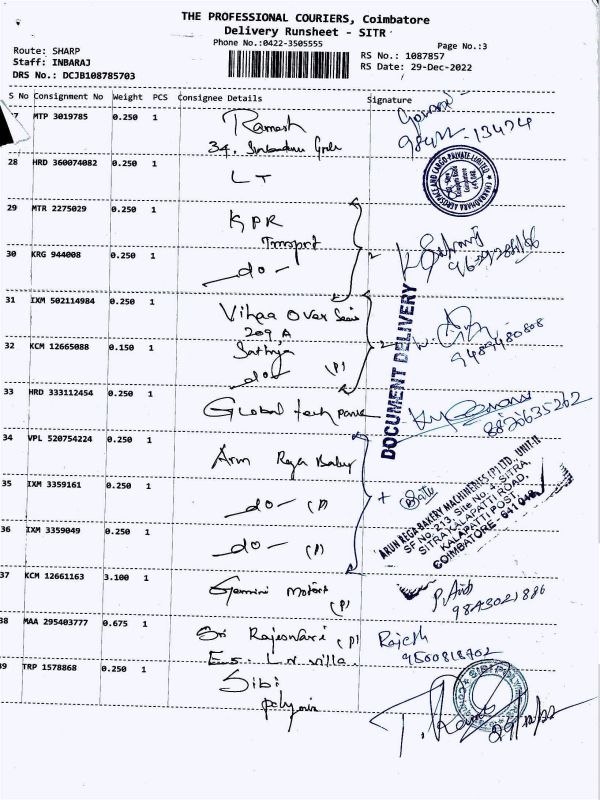 THE PROFESSIONAL COURIERS, Coimbatore
Delivery Runsheet - SITR
Phone No.:0422-3505555
Page No.:3
Route: SHARP
RS No.: 1087857
Staff: INBARAJ
RS Date: 29-Dec-2022
DRS No.: DCJB108785703
S No Consignment No Weight PCS Consignee Details Signature
7 MTP 3019785 0.250 1 Ramesh
34,
28 HRD 360074082 0.250 1 LT
29 MTR 2275029 0.250 1 KPR
Transport
30 KRG 944008 0.250 1 -do-
31 IXM 502114984 0.250 1 Vihaa Over Seas
209 A
32 KCM 12665088 0.150 1 Sathya
-do- (P)
9489480808
33 HRD 333112454 0.250 1 Global tech
8820635262
DOCUMENT DELIVERY
34 VPL 520754224 0.250 1 Arun Rega Bakery
35 IXM 3359161 0.250 1 -do- (P)
36 IXM 3359049 0.250 1 -do- (P)
ARUN REGA-BAKERY MACHINERIES (P) LTD., UNIT-II
SF No. 213, Site No. 4, SITRA,
SITRA KALAPATTI ROAD,
KALAPATTI POST,
COIMBATORE - 641 048
37 KCM 12661163 3.100 1 Gemini Motors (P)
9843021886
38 MAA 295403777 0.675 1 Sri Rajeswari (P)
L N villa.
Rajesh
9500818702
39 TRP 1578868 0.250 1 Sibi
polymir
29/12/22